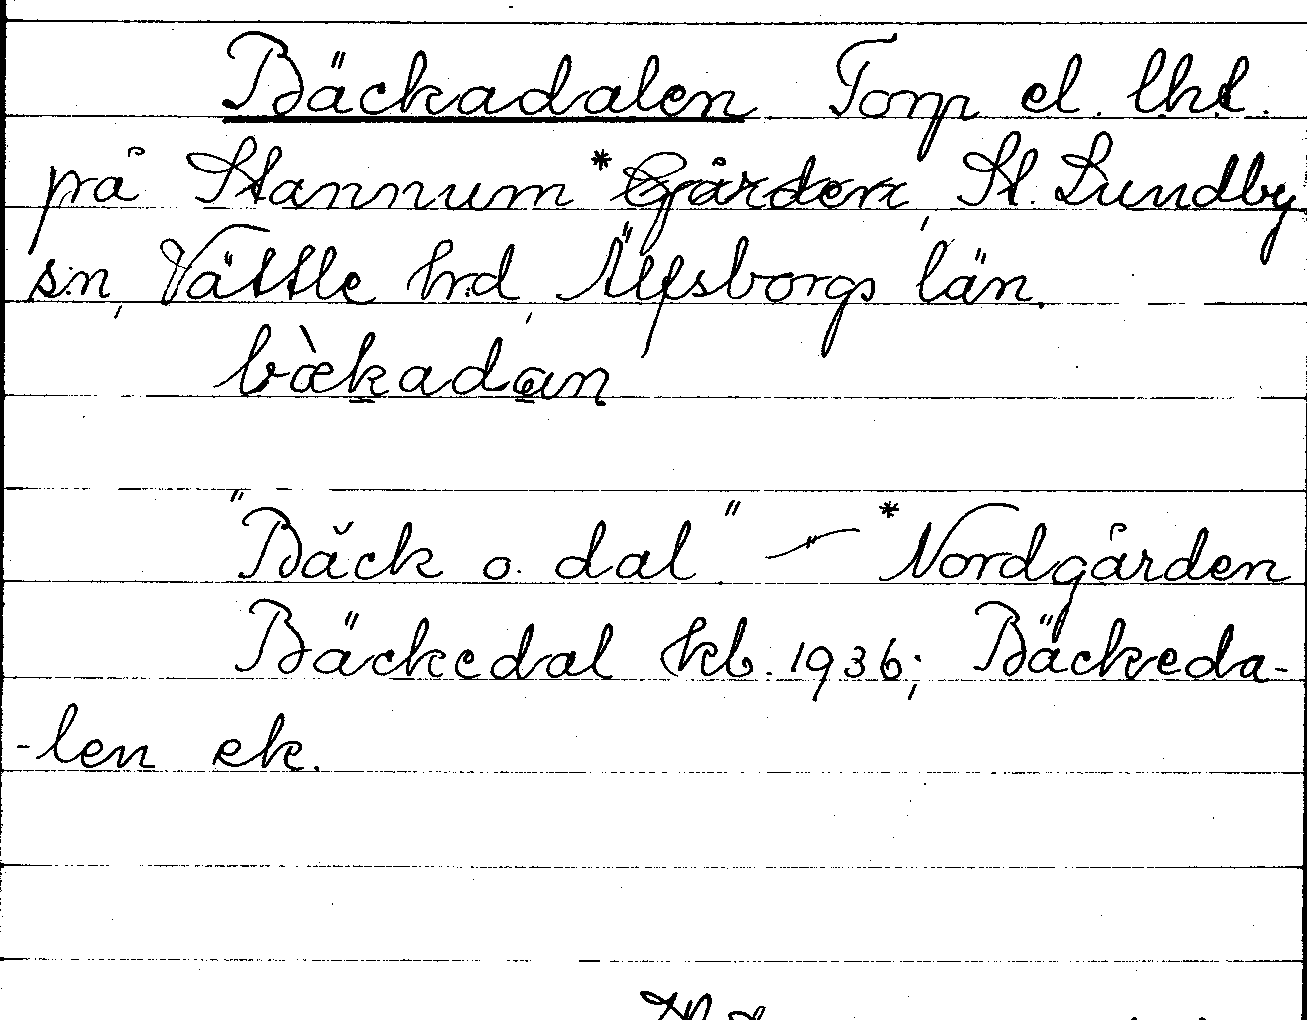 Bäckadalen Torp el. lht.
på Stannum *Gården, St. Lundby
s:n, Vättle hrd, Älfsborgs län.
bæ̀kadan
"Bäck o. dal." — *Nordgården
Bäckedal kb. 1936; Bäckeda-
-len ek.